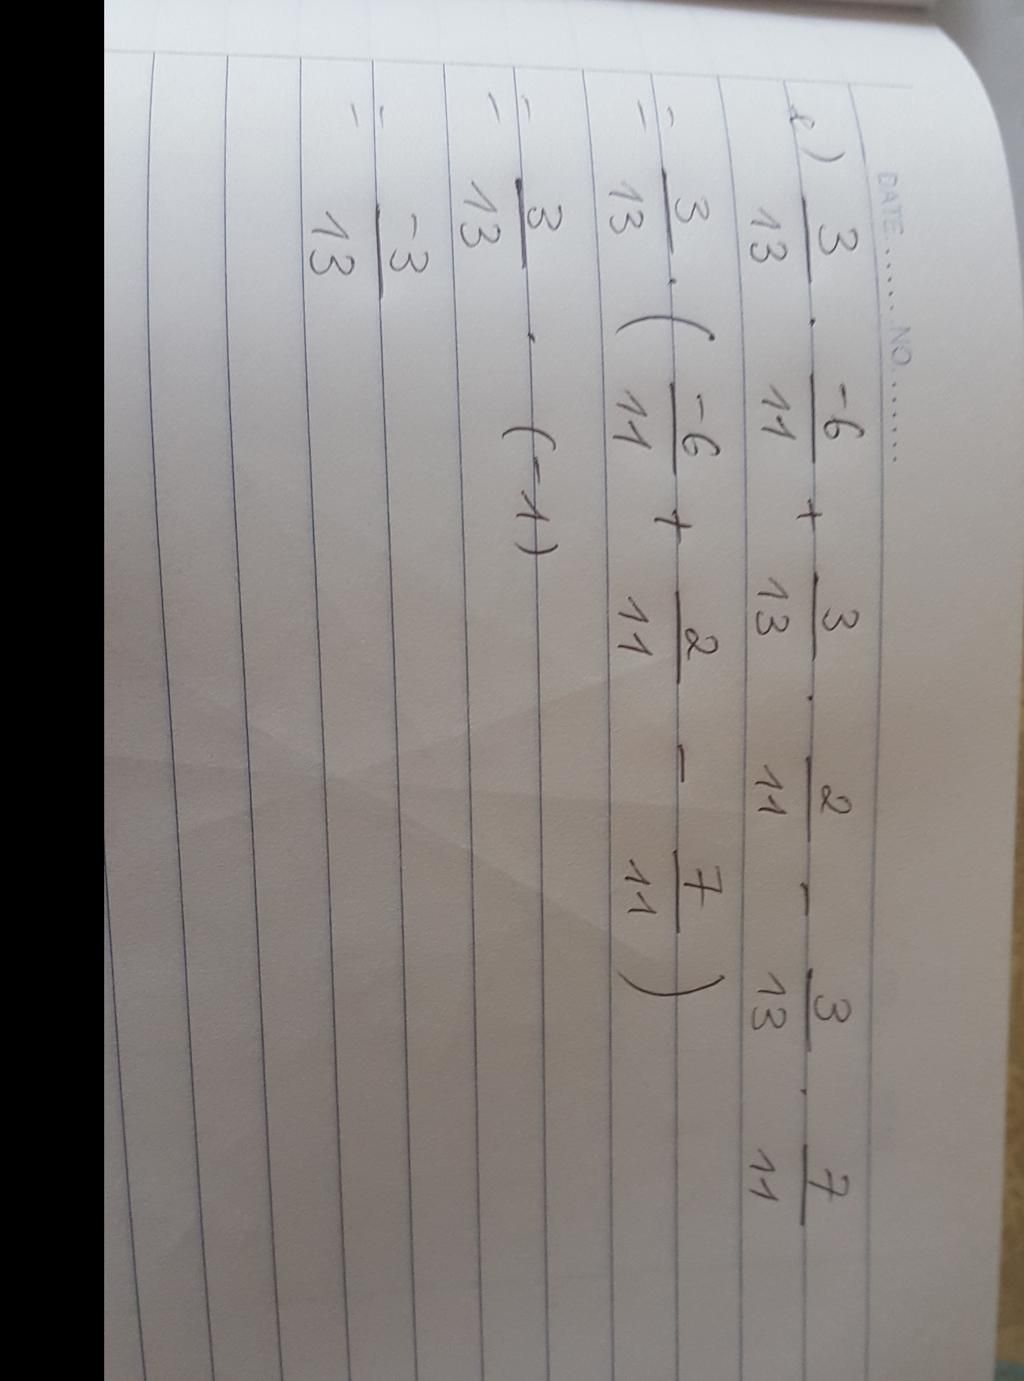 DATE...... NO.......
e) 3/13 . -6/11 + 3/13 . 2/11 - 3/13 . 7/11
= 3/13 . ( -6/11 + 2/11 - 7/11 )
= 3/13 . (-1)
= -3/13